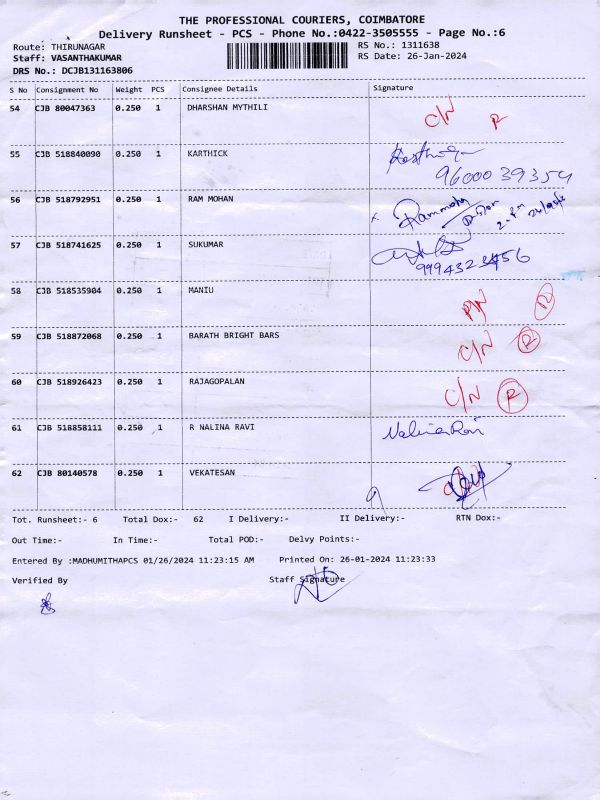 THE PROFESSIONAL COURIERS, COIMBATORE
Delivery Runsheet - PCS - Phone No.:0422-3505555 - Page No.:6
Route: THIRUNAGAR RS No.: 1311638
Staff: VASANTHAKUMAR RS Date: 26-Jan-2024
DRS No.: DCJB131163806
S No Consignment No Weight PCS Consignee Details Signature
54 CJB 80047363 0.250 1 DHARSHAN MYTHILI C/N R
55 CJB 518840090 0.250 1 KARTHICK
9600039354
56 CJB 518792951 0.250 1 RAM MOHAN Rammohan
57 CJB 518741625 0.250 1 SUKUMAR
58 CJB 518535904 0.250 1 MANIU R
59 CJB 518872068 0.250 1 BARATH BRIGHT BARS C/N R
60 CJB 518926423 0.250 1 RAJAGOPALAN C/N R
61 CJB 518858111 0.250 1 R NALINA RAVI Nalina Ravi
62 CJB 80140578 0.250 1 VEKATESAN
Tot. Runsheet:- 6 Total Dox:- 62 I Delivery:- II Delivery:- RTN Dox:-
Out Time:- In Time:- Total POD:- Delvy Points:-
Entered By :MADHUMITHAPCS 01/26/2024 11:23:15 AM Printed On: 26-01-2024 11:23:33
Verified By Staff Signature